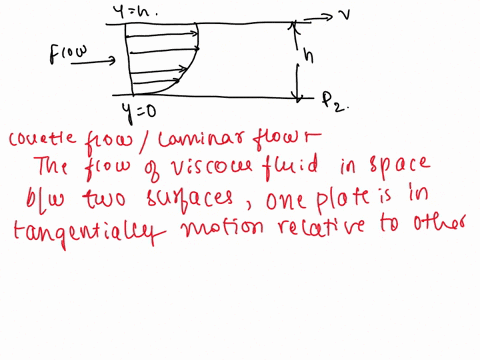 y=h.
v
Flow
h
y=0
P2.
couette flow / laminar flow
The flow of viscous fluid in space
b/w two surfaces, one plate is in
tangentially motion relative to other